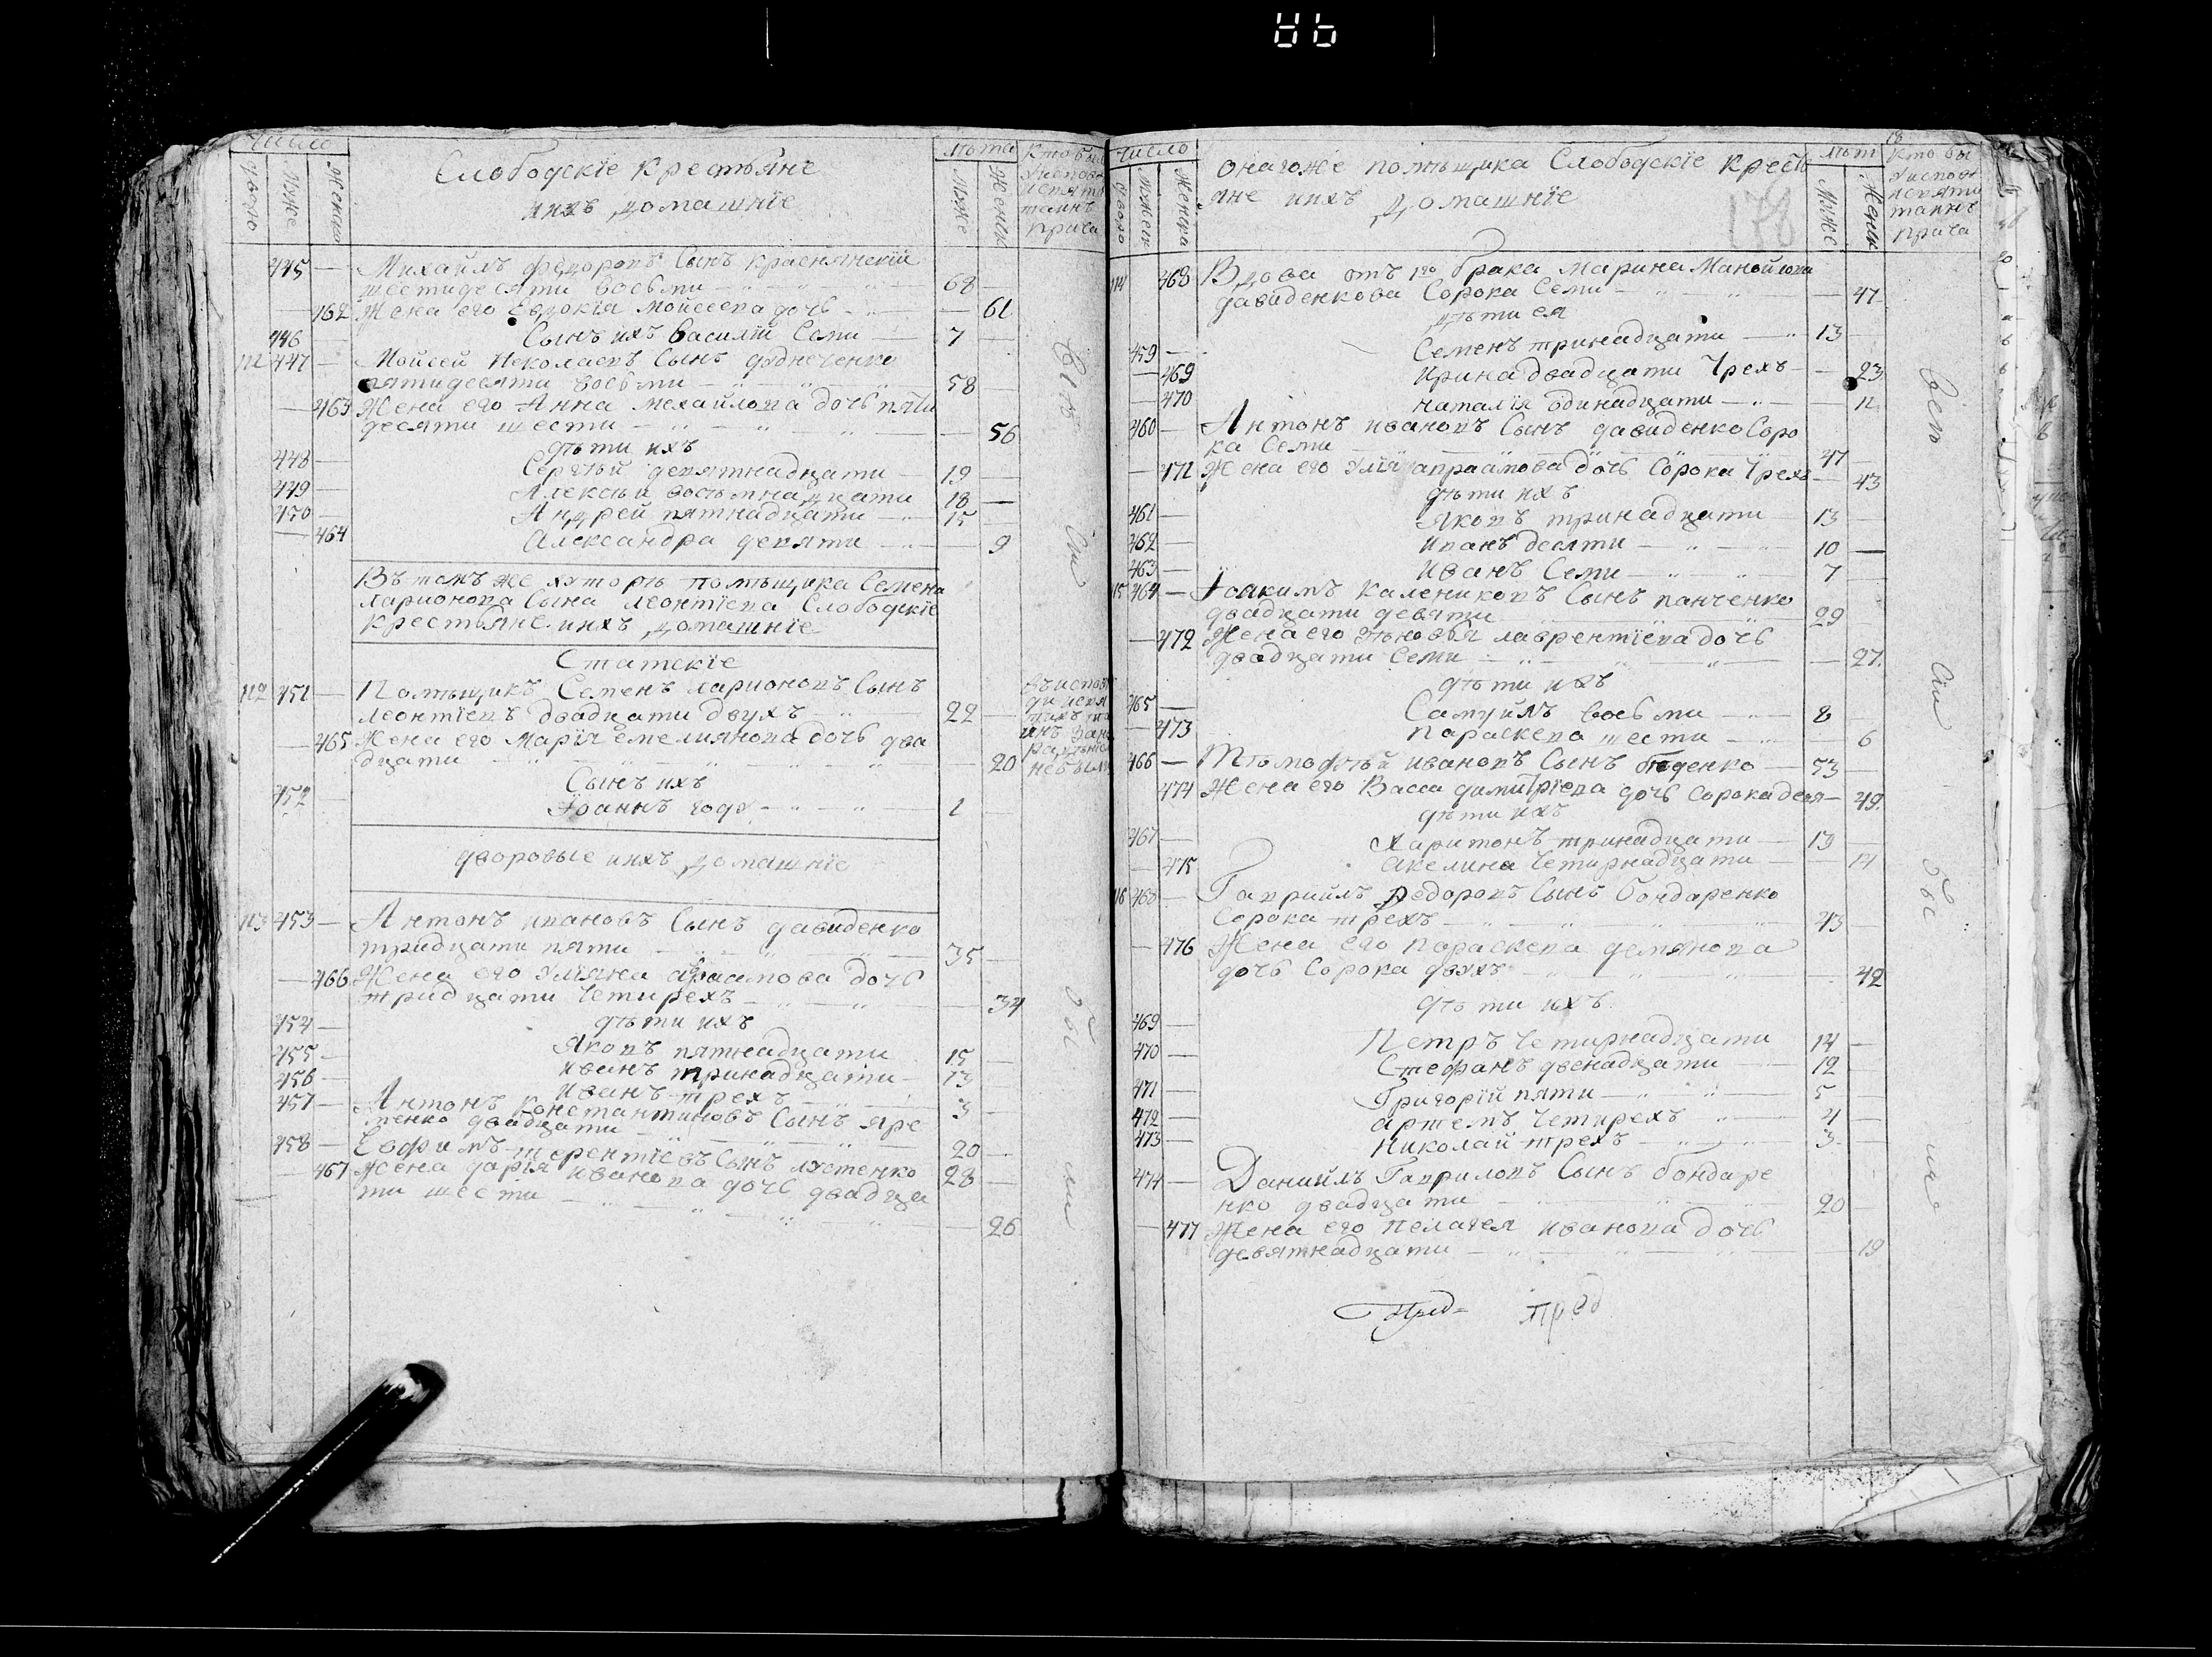 Число
Слободскїе крестьяне
ихъ домашнїе
лѣта
445 — Михаилъ Федоровъ Сынъ краснянскїй
шестидесяти восьми 68
462 Жена его Евдокїя Мойсеева дочь 61
446 Сынъ ихъ Василїй Семи 7
111 447 — Мойсей Неколаевъ Сынъ
пятидесяти восьми 58
463 Жена его Анна Мехайлова дочь пяти
десяти шести 56
дѣти ихъ
448 — Сергѣй девятнадцати 19
449 — Алексѣй восѣмнадцати 18
450 — Андрей пятнадцати 15
464 Александра девяти 9
Въ томъ же хуторѣ помѣщика Семена
Ларионова Сына Леонтїева Слободскїе
крестьяне ихъ домашнїе
Статскїе
112 451 — Помѣщикъ Семенъ Ларионовъ Сынъ
Леонтїевъ двадцати двухъ 22
465 Жена его Марїя Емелиянова дочь два
дцати 20
Сынъ ихъ
452 Їоаннъ года 1
дворовые ихъ домашнїе
113 453 — Антонъ Ивановъ Сынъ давиденко
тридцати пяти 35
466 Жена его Улїяна Авраамова дочь
тридцати Четирехъ 34
дѣти ихъ
454 — Яковъ пятнадцати 15
455 — Иванъ тринадцати 13
456 — Иванъ трехъ 3
457 — Антонъ Константиновъ Сынъ Яре
менко двадцати 20
458 — Ефимъ терентїевъ Сынъ 28
467 Жена дарїя Иванова дочь двадца
ти шести 26
Число
онагоже помѣщика Слободскїе кресть
яне ихъ домашнїе
лѣт
178
114 468 Вдова отъ 1го брака Марина Манойлова
давиденкова Сорока Семи 47
дѣти ея
459 — Семенъ тринадцати 13
469 Ирина двадцати Трехъ 23
470 Наталїя одинадцати 11
460 — Антонъ Ивановъ Сынъ давиденко Соро
ка Семи 47
471 Жена его Улїя Авраамова дочь Сорока Трехъ 43
дѣти ихъ
461 — Яковъ тринадцати 13
462 — Иванъ десяти 10
463 — Иванъ Семи 7
115 464 — Їоакимъ Калениковъ Сынъ панченко
двадцати девяти 29
472 Жена его Зѣновья лаврентїева дочь
двадцати Семи 27
дѣти ихъ
465 — Самуйлъ восьми 8
473 Параскева шести 6
466 — Тѣмофѣй Ивановъ Сынъ 53
474 Жена его Васса димитрїева дочь Сорока девя 49
дѣти ихъ
467 — Харитонъ тринадцати 13
475 Акелина Четирнадцати 14
116 468 — Гавриилъ Федоровъ Сынъ бондаренко
Сорока трехъ 43
476 Жена его Параскева демянова
дочь Сорока двухъ 42
дѣти ихъ
469 — Петръ Четирнадцати 14
470 — Стефанъ двенадцати 12
471 — Григорїй пяти 5
472 — Артемъ Четирехъ 4
473 — Николай трехъ 3
474 — Данийлъ Гавриловъ Сынъ бондаре
нко двадцати 20
477 Жена его Пелагея Иванова дочь
девятнадцати 19